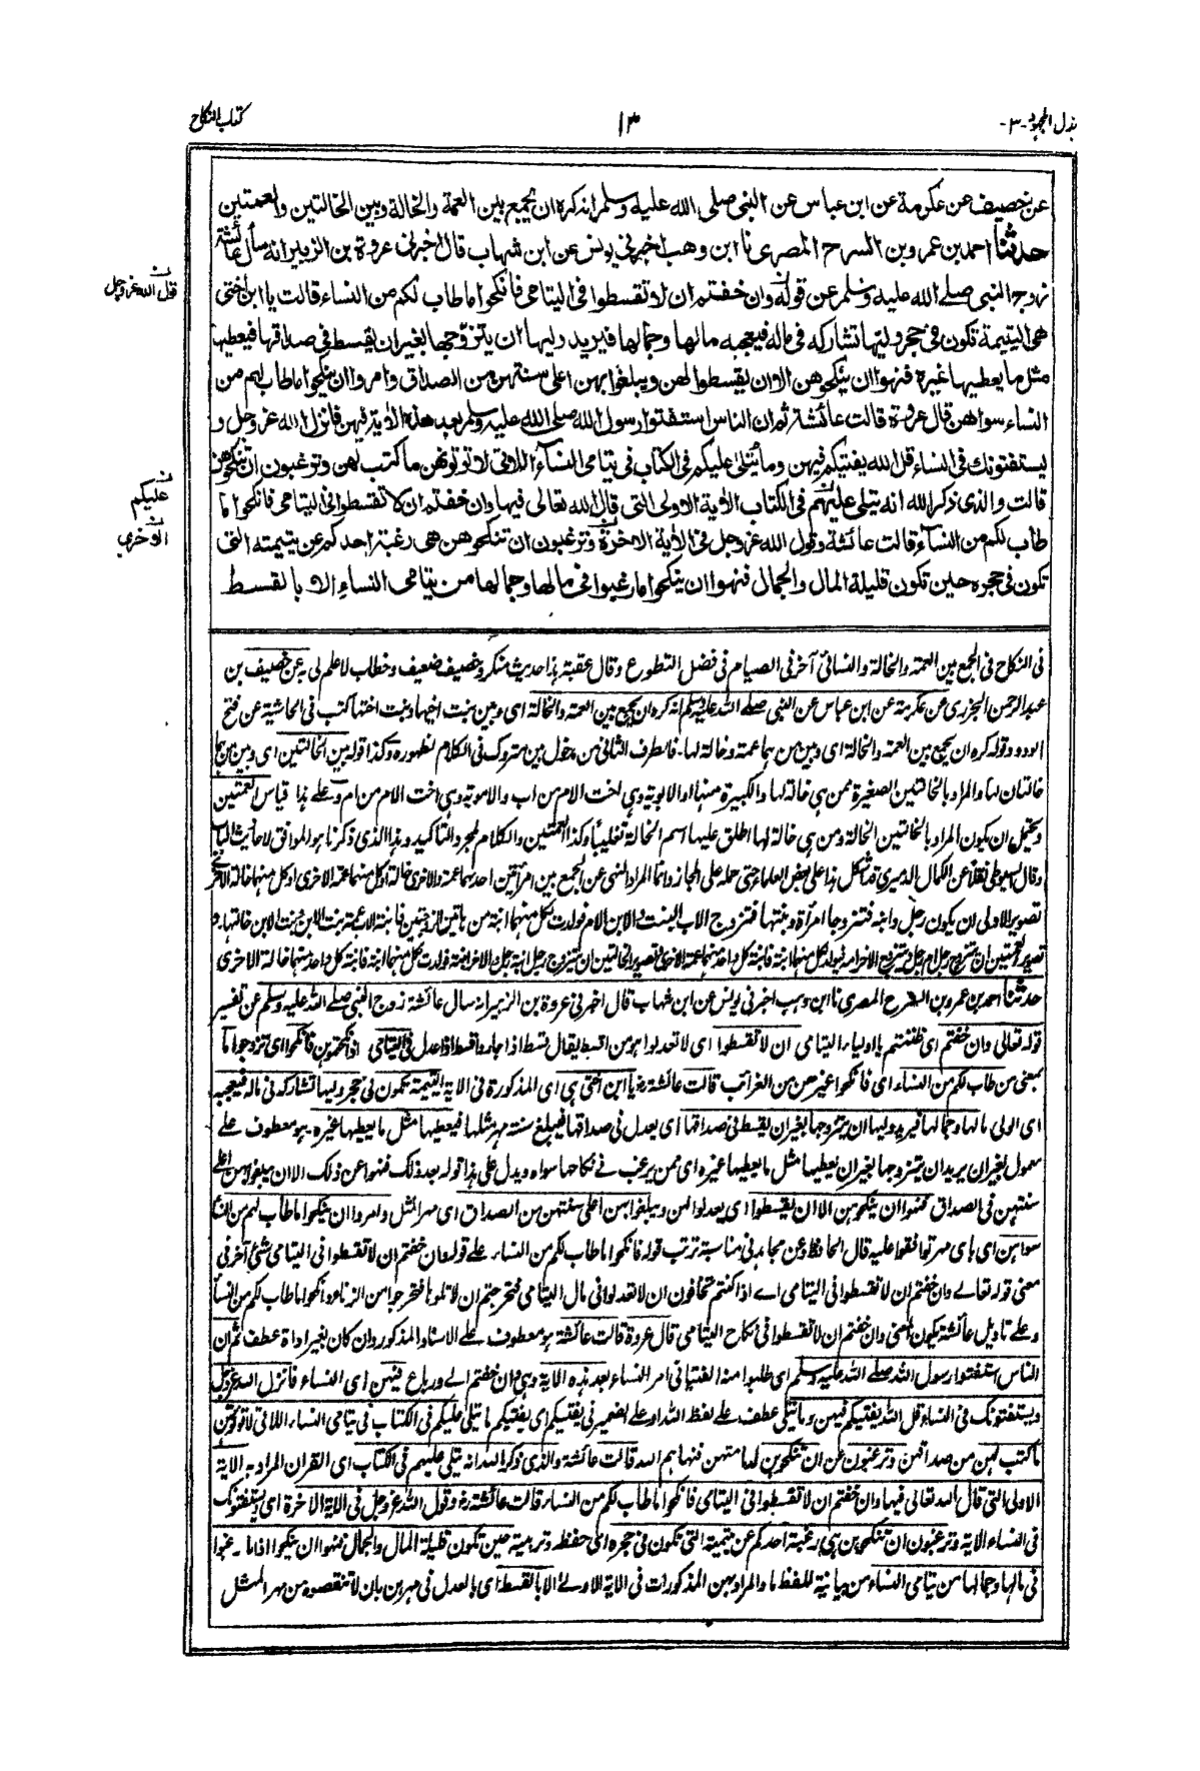 بذل المجهود -٣-
١٣
كتاب النكاح
عن خصيف عن عكرمة عن ابن عباس عن النبي صلى الله عليه وسلم انه كره ان يجمع بين العمة والخالة وبين الخالتين والعمتين
حدثنا احمد بن عمرو بن السرح المصرى نا ابن وهب اخبرني يونس عن ابن شهاب قال اخبرني عروة بن الزبير انه سأل عائشة
زوج النبي صلى الله عليه وسلم عن قوله وان خفتم ان لا تقسطوا فى اليتامى فانكحوا ما طاب لكم من النساء قالت يا ابن أختى
هى اليتيمة تكون فى حجر وليها تشاركه فى ماله فيعجبه مالها وجمالها فيريد وليها ان يتزوجها بغير ان يقسط فى صداقها فيعطيها
مثل ما يعطيها غيره فنهوا ان ينكحوهن الا ان يقسطوا لهن ويبلغوا بهن اعلى سنتهن من الصداق وامروا ان ينكحوا ما طاب لهم من
النساء سواهن قال عروة قالت عائشة ثم ان الناس استفتوا رسول الله صلى الله عليه وسلم بعد هذه الآية فيهن فانزل الله عز وجل و
يستفتونك فى النساء قل الله يفتيكم فيهن وما يتلى عليكم فى الكتاب فى يتامى النسآء اللاتى لا تؤتونهن ما كتب لهن وترغبون ان تنكحوهن
قالت والذى ذكر الله انه يتلى عليهم فى الكتاب الآية الاولى التى قال الله تعالى فيها وان خفتم ان لا تقسطوا فى اليتامى فانكحوا ما
طاب لكم من النسآء قالت عائشة وقول الله عز وجل فى الآية الاخرة وترغبون ان تنكحوهن هى رغبة احدكم عن يتيمته التى
تكون فى حجره حين تكون قليلة المال والجمال فنهوا ان ينكحوا ما رغبوا فى مالها وجمالها من يتامى النساء الا بالقسط
قول الله عز وجل
عليكم
الاخرى
فى النكاح فى الجمع بين العمة والخالة والنسائى آخر فى الصيام فى فضل التطوع وقال عقبة هذا حديث منكر وخصيف ضعيف وخطاب لا علم لى به عن خصيف بن
عبد الرحمن الجزرى عن عكرمة عن ابن عباس عن النبي صلى الله عليه وسلم انه كره ان يجمع بين العمة والخالة اى وبين بنت اخيها وبنت اختها كتب فى الحاشية عن فتح
الودود قوله كره ان يجمع بين العمة والخالة اى وبين من هما عمة وخالة لها. فالطرف الثانى من مدخول بين متروك فى الكلام لظهوره وكذا قوله بين الخالتين اى وبين من هما
خالتان لها والمراد بالخالتين الصغيرة ممن هى خالة لها والكبيرة منها او الابوية وهى اخت الام من اب والاموية وهى اخت الام من ام وعلى هذا قياس العمتين
ويحتمل ان يكون المراد بالخالتين الخالة ومن هى خالة لها اطلق عليها اسم الخالة تغليباً وكذا العمتين والكلام لمجرد التاكيد وهذا الذى ذكرنا هو الموافق لاحاديث الباب
وقال السيوطى نقلا عن الكمال الدميرى قد اشكل هذا على بعض العلماء حتى حمله على المجاز وانما المراد النهى عن الجمع بين امرأتين احدهما عمة والاخرى خالة او كل منهما عمة الاخرى او كل منهما خالة الاخرى
تصوير الاولى ان يكون رجل وابنه فتزوجا امرأة وبنتها فتزوج الاب البنت والابن الام فولدت لكل منهما ابنة من هاتين الزوجتين فابنة الاب عمة بنت الابن وبنت الابن خالتها.
تصوير العمتين ان يتزوج رجل ام رجل ويتزوج الآخر امه فيولد لكل منهما ابنة فابنة كل واحد منهما عمة الاخرى وتصوير الخالتين ان يتزوج رجل ابنة رجل والاخر ابنته فولدت لكل منهما ابنة فابنة كل واحد منهما خالة الاخرى
حدثنا احمد بن عمرو بن السرح المصرى نا ابن وهب اخبرنى يونس عن ابن شهاب قال اخبرنى عروة بن الزبير انه سال عائشة زوج النبي صلى الله عليه وسلم عن تفسير
قوله تعالى وان خفتم اى ظننتم يا اولياء اليتامى ان لا تقسطوا اى لا تعدلوا هو من اقسط يقال قسط اذا جار واقسط اذا عدل فى اليتامى اذا نكحتموهن فانكحوا اى تزوجوا ما
بمعنى من طاب لكم من النساء اى فانكحوا غيرهن من الغرائب قالت عائشة رض يا ابن اختى هى اى المذكورة فى الاية اليتيمة تكون فى حجر وليها تشاركه فى ماله فيعجبه
اى الولى مالها وجمالها فيريد وليها ان يتزوجها بغير ان يقسط فى صداقها اى يعدل فى صداقها فيبلغ سنة مهر مثلها فيعطيها مثل ما يعطيها غيره هو معطوف على
معمول بغير ان يريد ان يتزوجها بغير ان يعطيها مثل ما يعطيها غيره اى ممن يرغب فى نكاحها سواه ويدل على هذا قوله بعد ذلك فنهوا عن ذلك الا ان يبلغوا بهن اعلى
سنتهن فى الصداق فنهوا ان ينكحوهن الا ان يقسطوا اى يعدلوا لهن ويبلغوا بهن اعلى سنتهن من الصداق اى مهر المثل وامروا ان ينكحوا ما طاب لهم من النساء
سواهن اى باى مهر توافقوا عليه قال الحافظ وعن مجاهد فى مناسبة ترتب قوله فانكحوا ما طاب لكم من النساء على قوله وان خفتم ان لا تقسطوا فى اليتامى شئ آخر فى
معنى قوله تعالى وان خفتم ان لا تقسطوا فى اليتامى اى اذا كنتم تخافون ان لا تعدلوا فى مال اليتامى فتحرجتم ان لا تلوها فتحرجوا من الزنا وانكحوا ما طاب لكم من النسآء
وعلى تاويل عائشة يكون المعنى وان خفتم ان لا تقسطوا فى نكاح اليتامى قال عروة قالت عائشة هو معطوف على الاسناد المذكور وان كان بغير اداة عطف ثم ان
الناس استفتوا رسول الله صلى الله عليه وسلم اى طلبوا منه الفتيا فى امر النساء بعد هذه الاية وهى وان خفتم الى ورباع فيهن اى النساء فانزل الله عز وجل
ويستفتونك فى النساء قل الله يفتيكم فيهن وما يتلى عطف على لفظ الله او على ضمير فى يفتيكم اى يفتيكم ما يتلى عليكم فى الكتاب فى يتامى النساء اللاتى لا تؤتونهن
ما كتب لهن من صداقهن وترغبون عن ان تنكحوهن لدمامتهن فنهاهم الله قالت عائشة والذى ذكر الله انه يتلى عليهم فى الكتاب اى القران المراد به الاية
الاولى التى قال الله تعالى فيها وان خفتم ان لا تقسطوا فى اليتامى فانكحوا ما طاب لكم من النساء قالت عائشة رض وقول الله عز وجل فى الاية الاخرة اى يستفتونك
فى النساء الاية وترغبون ان تنكحوهن هى رغبة احدكم عن يتيمته التى تكون فى حجره اى حفظه وتربيته حين تكون قليلة المال والجمال فنهوا ان ينكحوا اذا ما رغبوا
فى مالها وجمالها من يتامى النساء من بيانية للفظ ما والمراد بهن المذكورات فى الاية الاولى الا بالقسط اى بالعدل فى مهرهن بان لا تنقصوه من مهر المثل